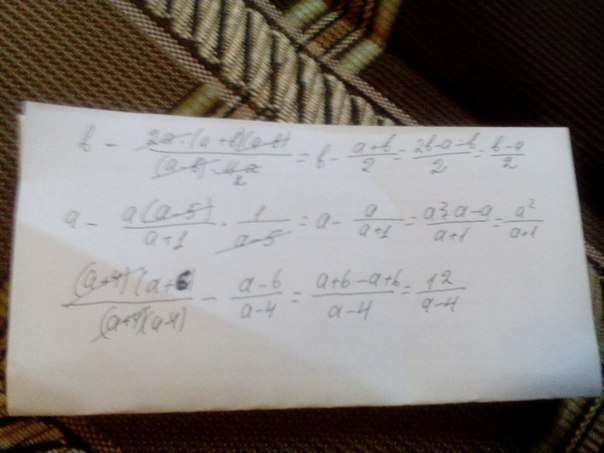 b - 2a·(a+b)(a-b)/(a-b)·4a 2 = b - a+b/2 = 2b-a-b/2 = b-a/2
a - a(a-5)/a+1 · 1/a-5 = a - a/a+1 = a²+a-a/a+1 = a²/a+1
(a+4)(a+6)/(a+4)(a-4) - a-6/a-4 = a+6-a+6/a-4 = 12/a-4